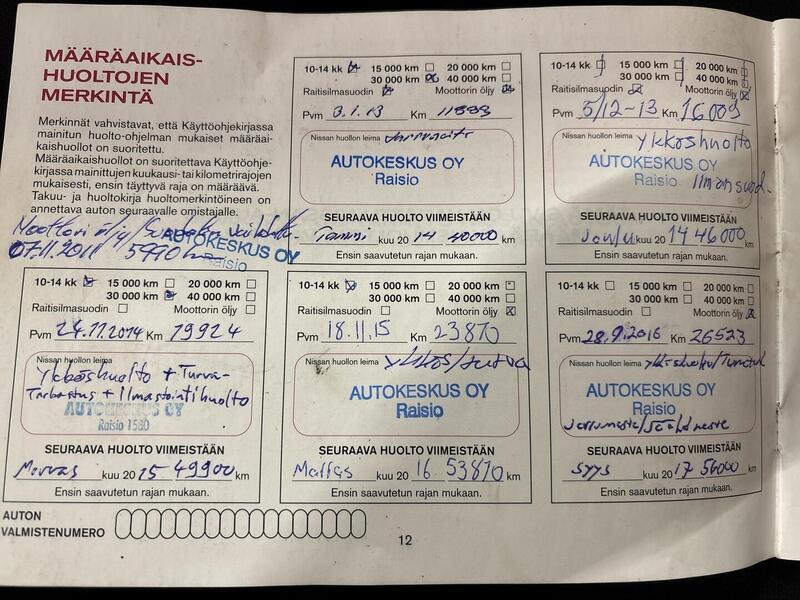 MÄÄRÄAIKAIS-
HUOLTOJEN
MERKINTÄ
Merkinnät vahvistavat, että Käyttöohjekirjassa
mainitun huolto-ohjelman mukaiset määräai-
kaishuollot on suoritettu.
Määräaikaishuollot on suoritettava Käyttöohje-
kirjassa mainittujen kuukausi- tai kilometrirajojen
mukaisesti, ensin täyttyvä raja on määräävä.
Takuu- ja huoltokirja huoltomerkintöineen on
annettava auton seuraavalle omistajalle.
Moottoriöljy/
07.11.2011 5990 km
AUTOKESKUS OY
Raisio
10-14 kk 15 000 km 20 000 km
30 000 km 40 000 km
Raitisilmasuodin Moottorin öljy
Pvm 3.1.13 Km
Nissan huollon leima
AUTOKESKUS OY
Raisio
SEURAAVA HUOLTO VIIMEISTÄÄN
Tammi kuu 20 14 40000 km
Ensin saavutetun rajan mukaan.
10-14 kk 15 000 km 20 000 km
30 000 km 40 000 km
Raitisilmasuodin Moottorin öljy
Pvm 5/12-13 Km 16009
Nissan huollon leima Ykköshuolto
AUTOKESKUS OY
Raisio Ilmansuod-
SEURAAVA HUOLTO VIIMEISTÄÄN
Joulu kuu 20 14 46000 km
Ensin saavutetun rajan mukaan.
10-14 kk 15 000 km 20 000 km
30 000 km 40 000 km
Raitisilmasuodin Moottorin öljy
Pvm 24.11.2014 Km 19924
Nissan huollon leima
Ykköshuolto + Turva-
Tarkastus + Ilmastointihuolto
AUTOKESKUS OY
Raisio 1530
SEURAAVA HUOLTO VIIMEISTÄÄN
Marras kuu 20 15 49900 km
Ensin saavutetun rajan mukaan.
10-14 kk 15 000 km 20 000 km
30 000 km 40 000 km
Raitisilmasuodin Moottorin öljy
Pvm 18.11.15 Km 23870
Nissan huollon leima ykkös/turva
AUTOKESKUS OY
Raisio
SEURAAVA HUOLTO VIIMEISTÄÄN
Marras kuu 20 16 53870 km
Ensin saavutetun rajan mukaan.
10-14 kk 15 000 km 20 000 km
30 000 km 40 000 km
Raitisilmasuodin Moottorin öljy
Pvm 28.9.2016 Km 26523
Nissan huollon leima
AUTOKESKUS OY
Raisio
Jarruneste/Jäähd neste
SEURAAVA HUOLTO VIIMEISTÄÄN
Syys kuu 20 17 56000 km
Ensin saavutetun rajan mukaan.
AUTON
VALMISTENUMERO
12